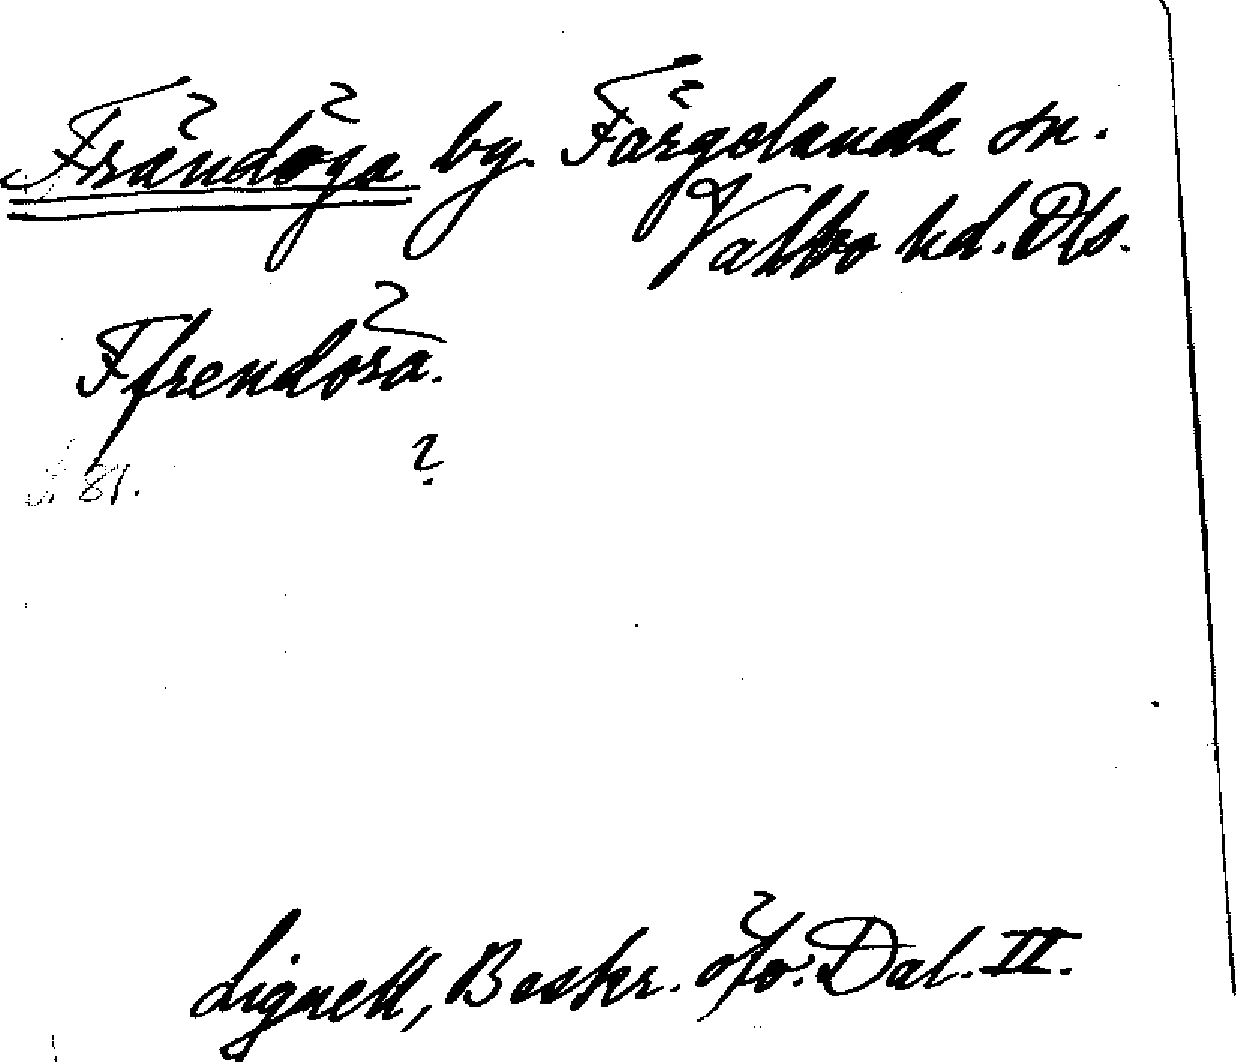 Frändöga by. Färgelanda sn.
Valbo hd. Dls.
Ffrendöra.
?
s. 81.
Lignell, Beskr. öfv. Dal. II.